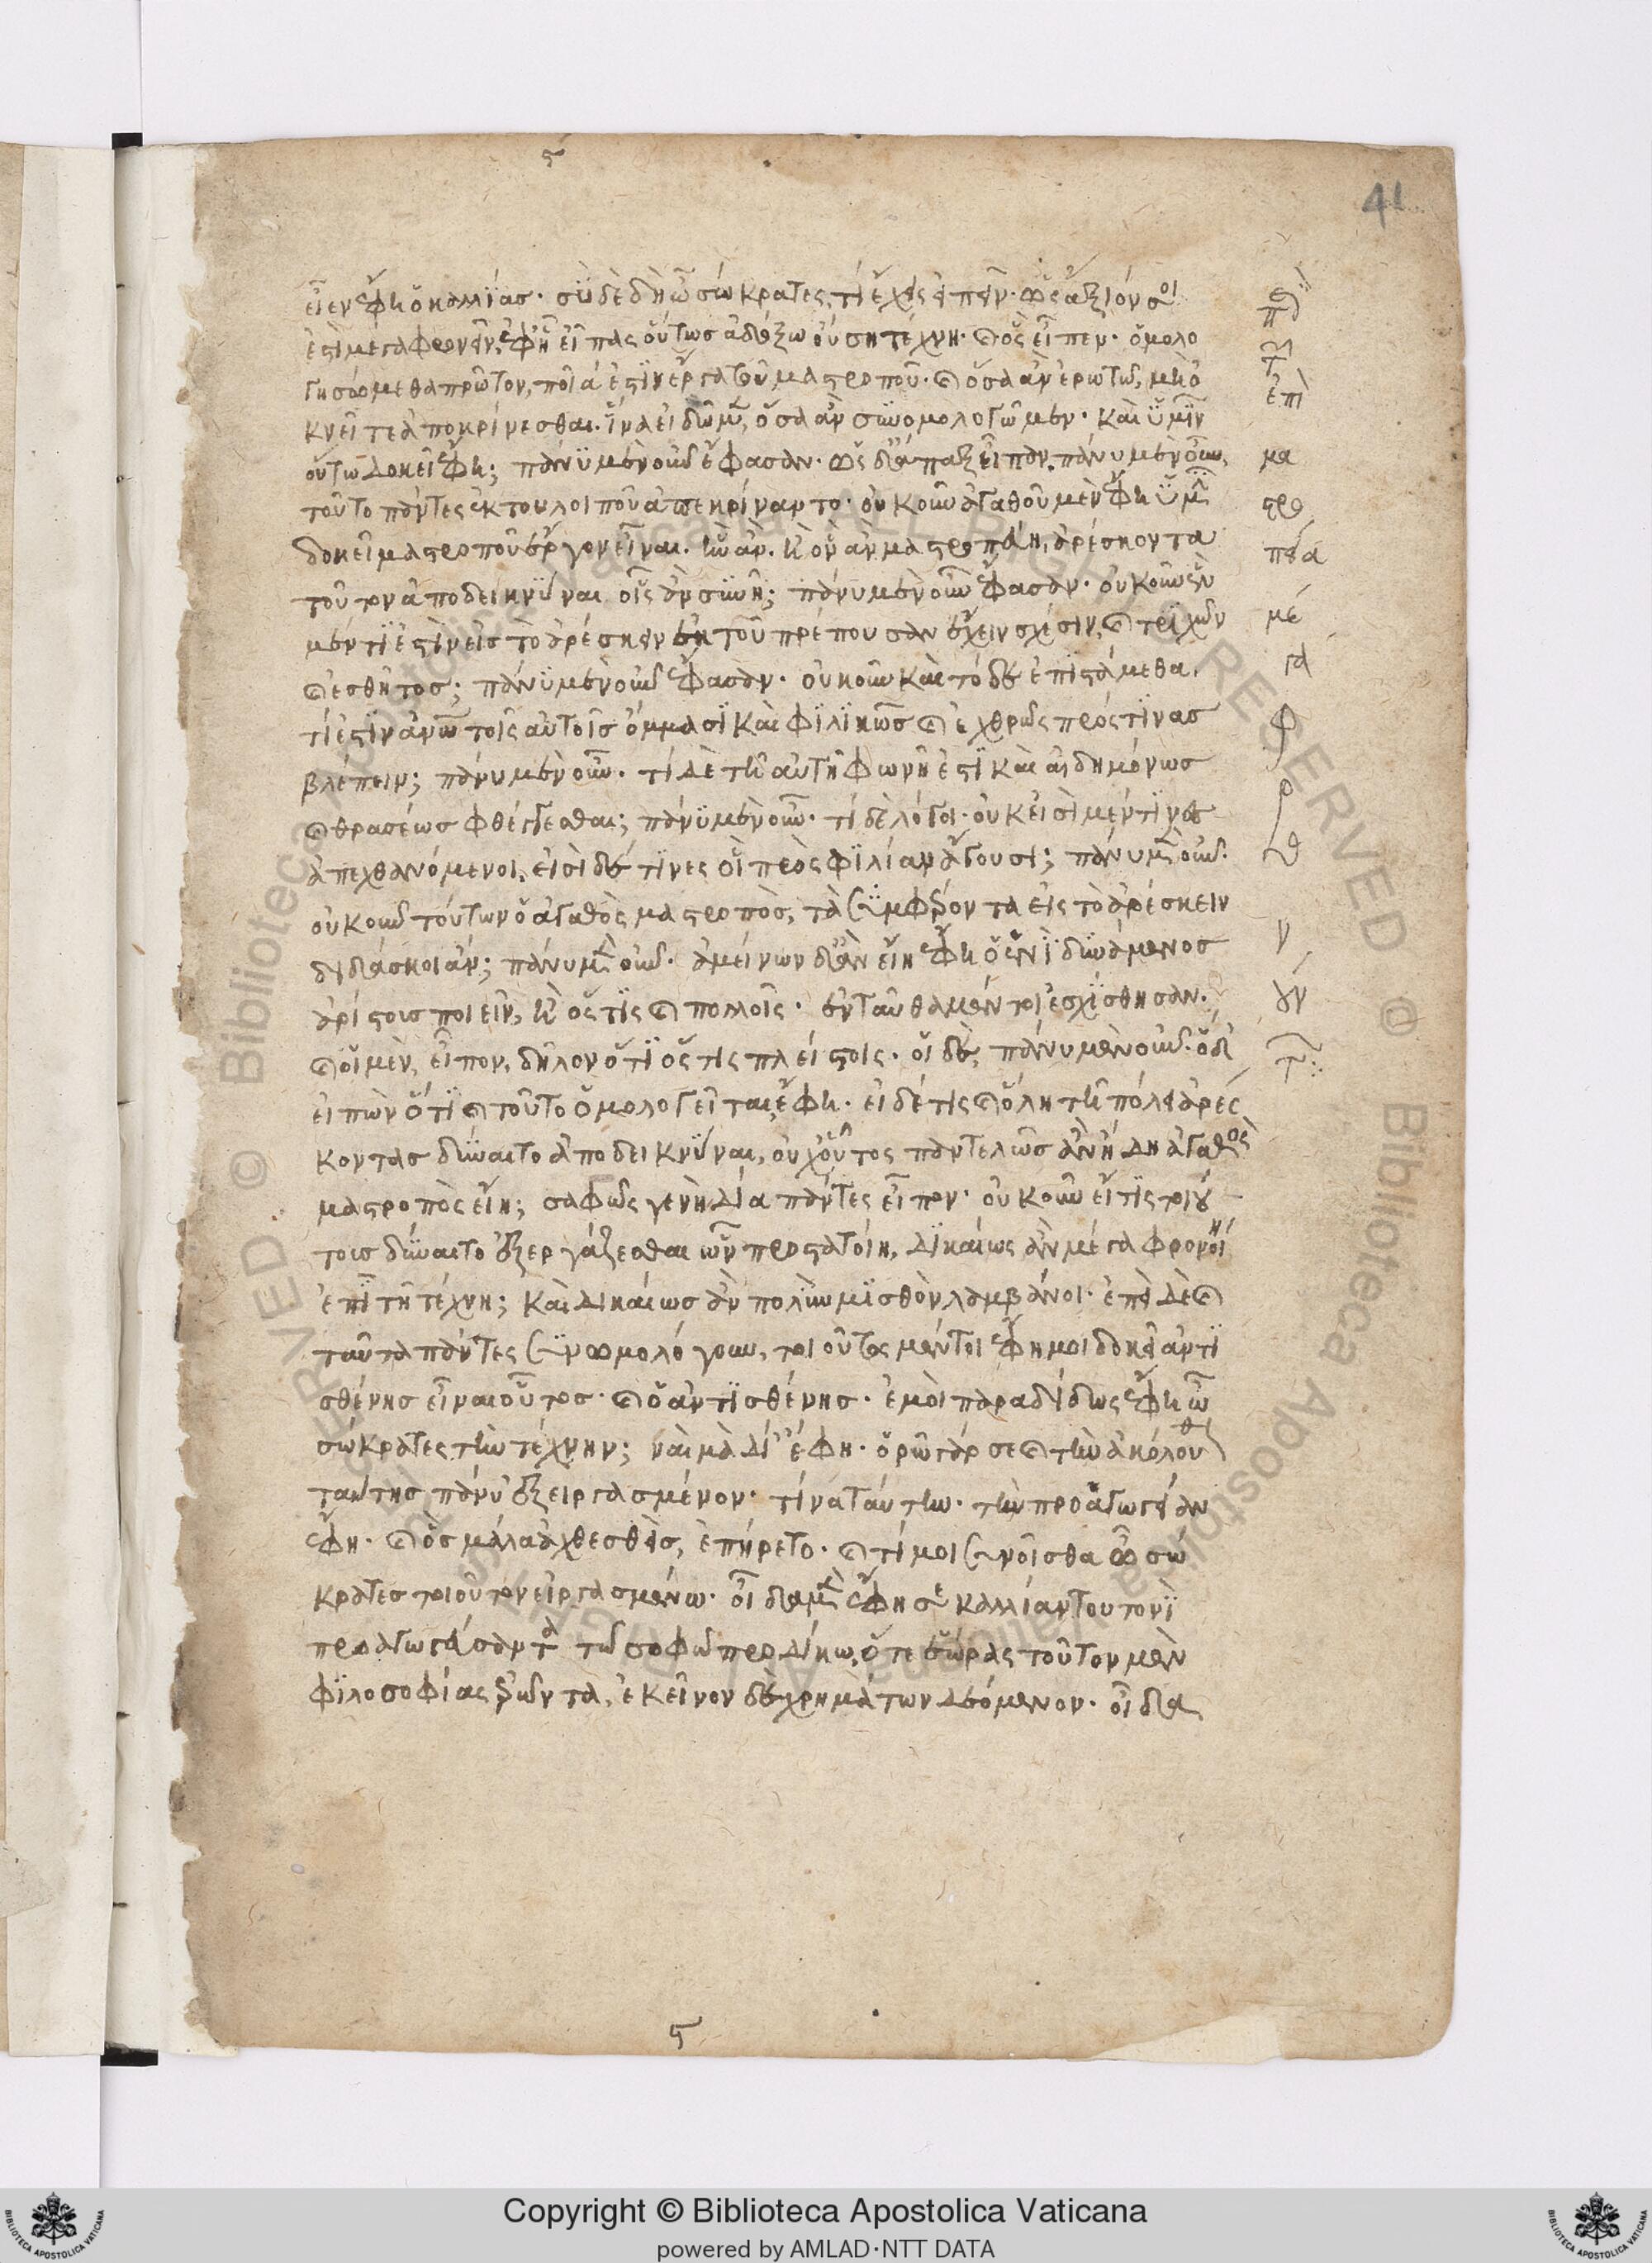 41
εἶεν ἔφη ὁ καλλίας· σὺ δὲ δὴ ὦ σώκρατες, τί ἔχεις εἰπεῖν· ὡς ἄξιόν σοι
ἐστὶ μέγα φρονεῖν, ἐφ' ᾗ εἶπας οὕτως ἀδόξω οὔση τέχνη· καὶ ὃς εἶπεν· ὁμολο
γησώμεθα πρῶτον, ποῖά ἐστὶν ἔργα τοῦ μαστροποῦ· καὶ ὅσα ἂν ἐρωτῶ, μὴ ὀ
κνεῖτε ἀποκρίνεσθαι. ἵνα εἰδῶμεν, ὅσα ἂν συνομολογῶμεν· καὶ ὑμῖν
οὕτω δοκεῖ ἔφη; πάνυ μὲν οὖν ἔφασαν· ὡς δ' ἅπαξ εἶπαν πάνυ μὲν οὖν,
τοῦτο πάντες ἐκ του λοιποῦ ἀπεκρίναντο· οὐκοῦν ἀγαθοῦ μὲν ἔφη ὑμῖν
δοκεῖ μαστροποῦ ἔργον εἶναι. ἣν ἂν. ἢ ὃν ἂν μαστροπεύη, ἀρέσκοντα
τοῦτον ἀποδεικνύναι οἷς ἂν συνῆ; πάνυ μὲν οὖν ἔφασαν· οὐκοῦν ἓν
μέν τι ἐστὶν εἰς τὸ ἀρέσκειν ἐκ τοῦ πρέπουσαν ἔχειν σχέσιν, καὶ τριχῶν
καὶ ἐσθῆτος; πάνυ μὲν οὖν ἔφασαν· οὐκοῦν καὶ τόδε ἐπιστάμεθα.
τί ἐστὶν ἀνω τοῖς αὐτοῖς ὄμμασι καὶ φιλικῶς καὶ ἐχθρῶς πρός τινας
βλέπειν; πάνυ μὲν οὖν. τί δὲ τῆ αὐτῆ φωνῆ ἐστὶ καὶ αἰδημόνως
καὶ θρασέως φθέγγεσθαι; πάνυ μὲν οὖν· τί δὲ λόγοι· οὐκ εἰσὶ μέν τινες
ἀπεχθανόμενοι, εἰσὶ δέ τινες οἳ πρὸς φιλίαν ἄγουσι; πάνυ μὲν οὖν.
οὐκοῦν τούτων ὁ ἀγαθὸς μαστροπὸς, τὰ συμφέροντα εἰς τὸ ἀρέσκειν
διδάσκοι ἄν; πάνυ μὲν οὖν· ἀμείνων δ' ἂν εἴη ἔφη ὁ ἑνὶ δυνάμενος
ἀρίστους ποιεῖν, ἢ ὅστις καὶ πολλοῖς· ἐνταῦθα μέντοι ἐσχίσθησαν·
καὶ οἱ μὲν, εἶπον, δῆλον ὅτι ὅστις πλείστοις· οἱ δὲ, πάνυ μὲν οὖν· ὁ δὲ
εἰπὼν ὅτι καὶ τοῦτο ὁμολογεῖται, ἔφη· εἰ δέ τις καὶ ὅλη τῆ πόλει ἀρέσ
κοντας δύναιτο ἀποδεικνύναι, οὐχ οὗτος παντελῶς ἂν ἤδη ἀγαθὸς
μαστροπὸς εἴη; σαφῶς γε νὴ δία πάντες εἶπον· οὐκοῦν εἴ τις τοιού
τους δύναιτο ἐξεργάζεσθαι ὧν προστατοίη, δικαίως ἂν μέγα φρονοίη
ἐπὶ τῆ τέχνη; καὶ δικαίως ἂν πολὺν μισθὸν λαμβάνοι· ἐπεὶ δὲ καὶ
ταῦτα πάντες συνωμολόγουν, τοιοῦτος μέντοι ἔφη μοι δοκεῖ ἀντι
σθένης εἶναι οὗτος· καὶ ὁ ἀντισθένης· ἐμοὶ παραδίδως ἔφη ὦ
σώκρατες τὴν τέχνην; ναὶ μὰ δί' ἔφη· ὁρῶ γάρ σε καὶ τὴν ἀκόλουθον
ταύτης πάνυ ἐξειργασμένον· τίνα ταύτην· τὴν προαγωγείαν
ἔφη· καὶ ὃς μάλα ἀχθεσθεὶς, ἐπήρετο· καὶ τί μοι σύνοισθα ὦ σώ
κρατες τοιοῦτον εἰργασμένω· οἶδα μὲν ἔφη σε καλλίαν τουτονὶ
προαγωγεύσαντα τῶ σοφῶ προδίκω, ὅτε ἑώρας τοῦτον μὲν
φιλοσοφίας ἐρῶντα, ἐκεῖνον δὲ χρημάτων δεόμενον· οἶδα
ἐπὶ
μα
στρο
πεία
μέ
γα
φ
ρο
ν
οῦν
Copyright © Biblioteca Apostolica Vaticana
powered by AMLAD·NTT DATA